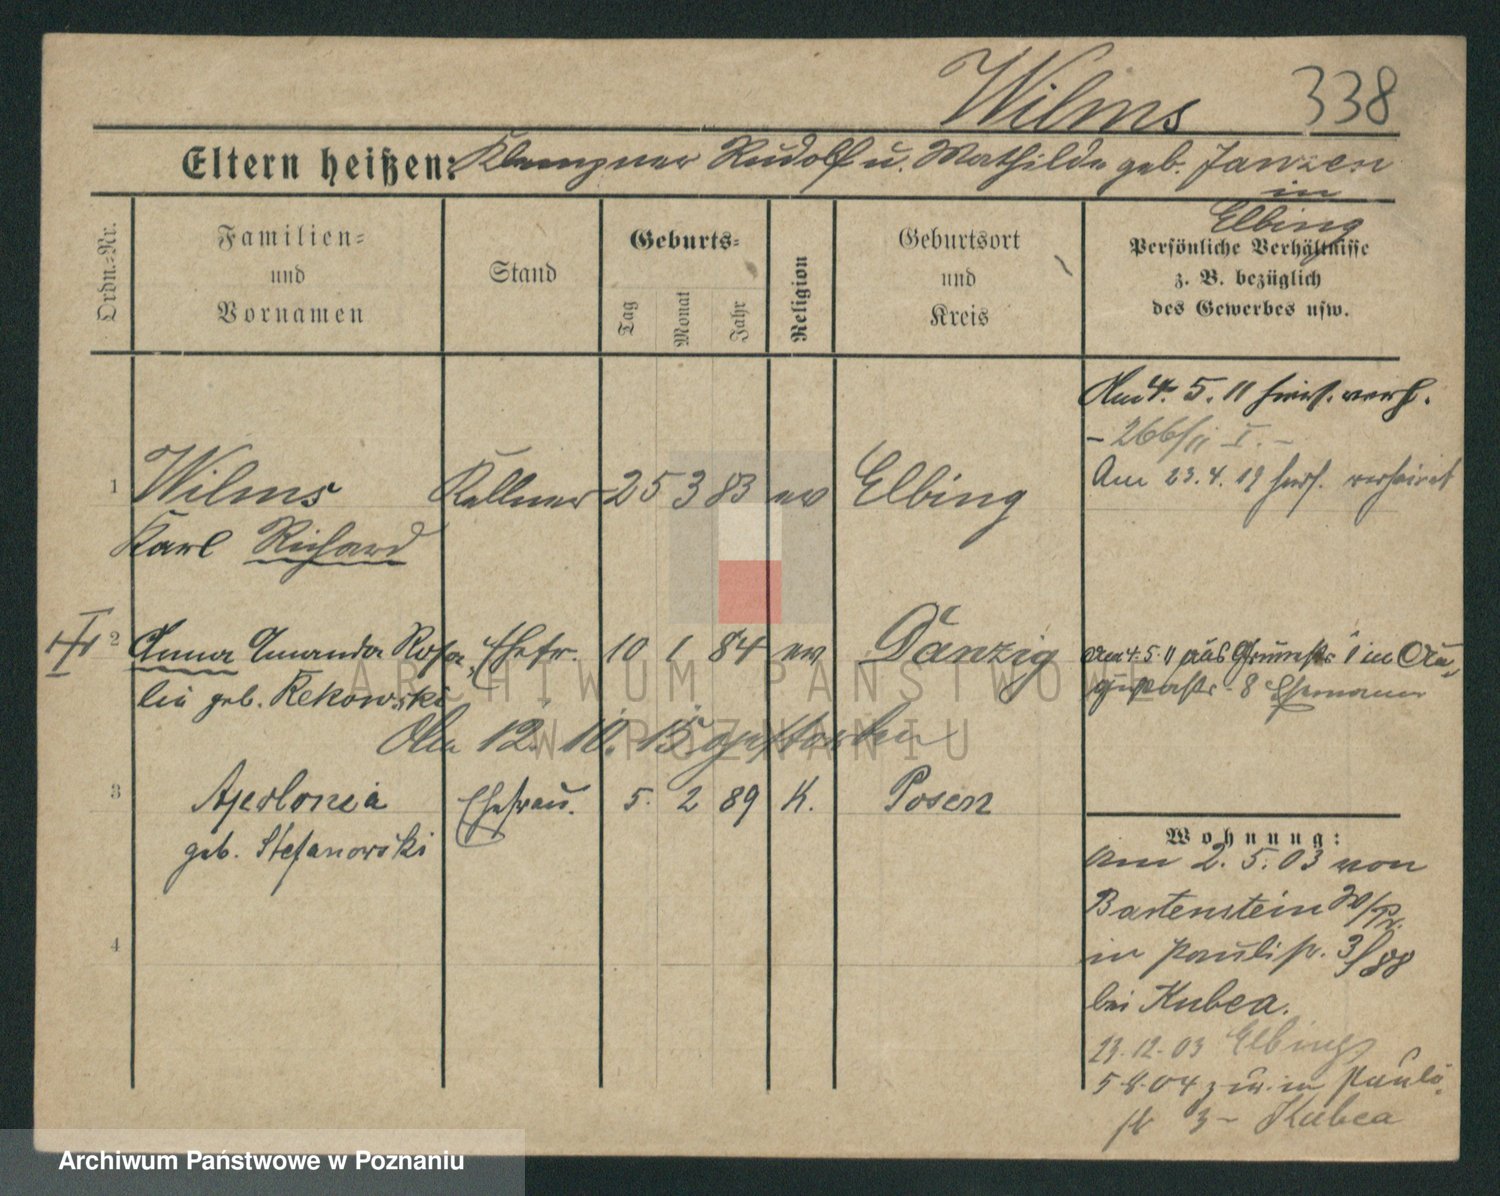 Wilms 338
Eltern heißen: Klempner Rudolf u. Mathilde geb. Janzen
in
Elbing
Ordn.-Nr.
Familien-
und
Vornamen
Stand
Geburts-
Tag
Monat
Jahr
Religion
Geburtsort
und
Kreis
Persönliche Verhältnisse
z. B. bezüglich
des Gewerbes usw.
Am 4. 5. 11 hiers. verh.
- 266/11 I. -
Am 23. 4. 19 hers. verheirat
1 Wilms Kellner 25 3 83 ev Elbing
Karl Richard
2 Anna Amanda Rosa Ehefr. 10 1 84 ev Danzig
lia geb. Rekowski
Am 4. 5. 11 aus in Au
8 Ehemann
Am 12. 10. 15 gestorben
3 Apolonia Ehefrau. 5. 2 89 K. Posen
geb. Stefanowski
4
Wohnung:
Am 2. 5. 03 von
Bartenstein
in Paulistr. 3
bei Kubea.
23. 12. 03 Elbing
5. 8. 04 zur. in Pauli
str 3 - Kubea
ARCHIWUM PAŃSTWOWE
W POZNANIU
Archiwum Państwowe w Poznaniu